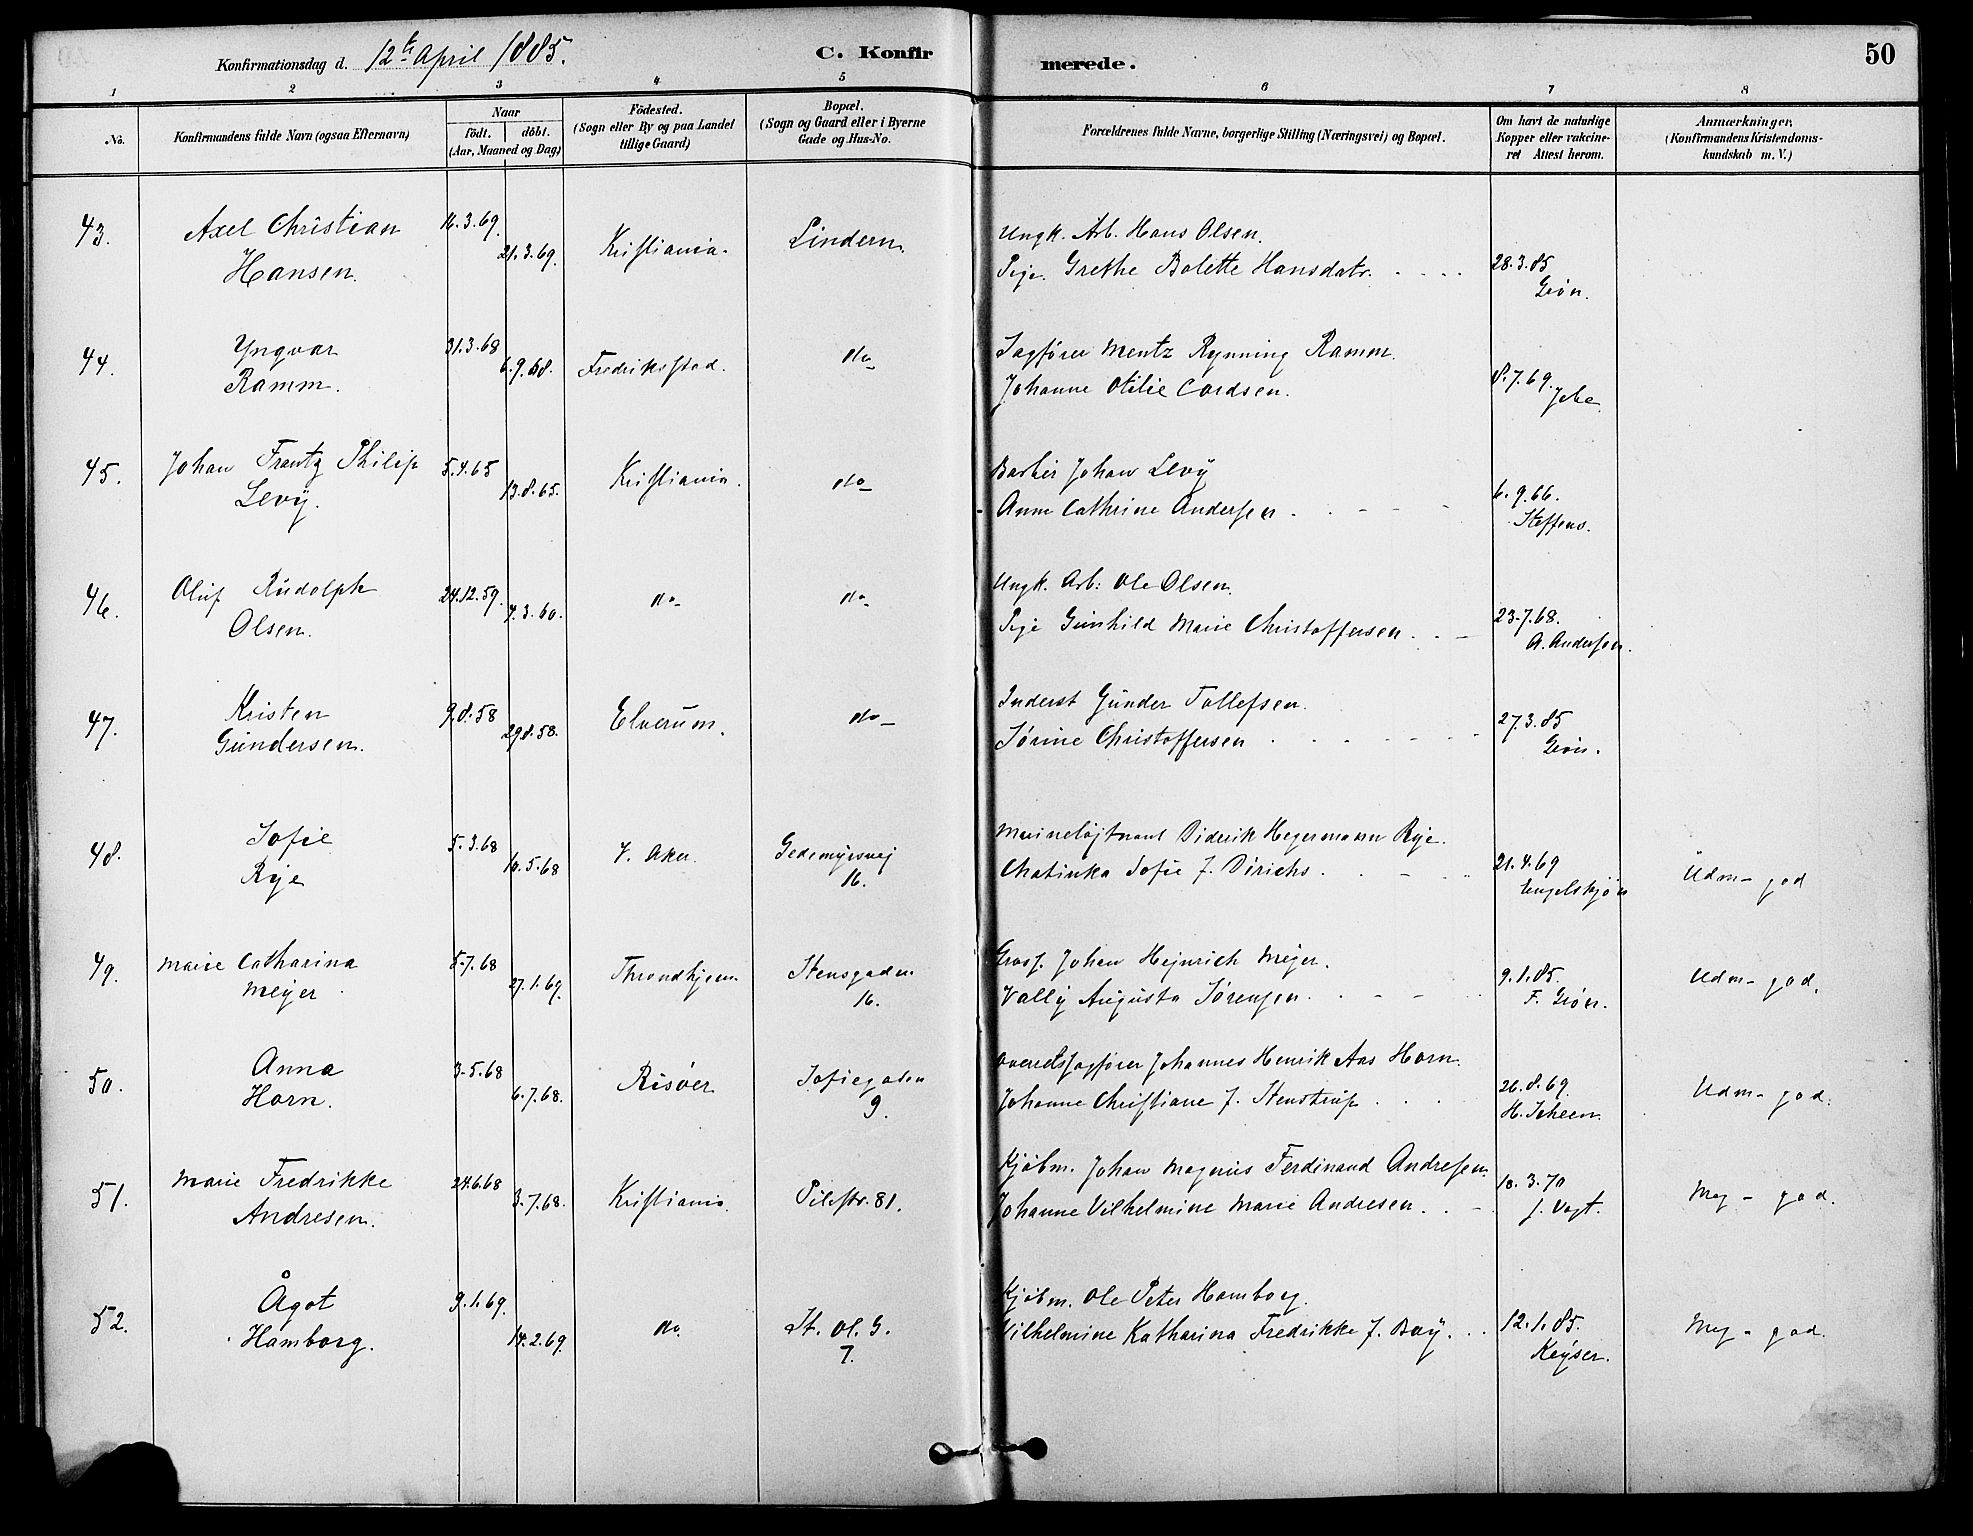 Konfirmationsdag d. 12te April 1885.
C. Konfirmerede.
50
1 2 3 4 5 6 7 8
No.
Konfirmandens fulde Navn (ogsaa Efternavn)
Naar
födt. döbt.
(Aar, Maaned og Dag)
Födested.
(Sogn eller By og paa Landet
tillige Gaard)
Bopæl.
(Sogn og Gaard eller i Byerne
Gade og Hus-No.
Forældrenes fulde Navne, borgerlige Stilling (Næringsvei) og Bopæl.
Om havt de naturlige
Kopper eller vakcine-
ret Attest herom.
Anmærkninger.
(Konfirmandens Kristendoms-
kundskab m. V.)
43. Axel Christian 16.3.69. 21.3.69. Kristiania. Lindern Ungk. Arb. Hans Olsen.
Hansen. Pige. Grethe Bolette Hansdatr. 28.3.85
Grön.
44. Yngvar 31.3.68 6.9.68. Fredriksstad. do Sagfører Mentz Rynning Ramm.
Ramm. Johanne Otilie Cordsen. 8.7.69.
45. Johan Frantz Philip 5.4.65 13.8.65. Kristiania. do Barbér Johan Levÿ
Levÿ. Anne Cathrine Andersen 6.9.66.
Steffens.
46. Oluf Rudolph 24.12.59. 4.3.60. do do Ungk. Arb: Ole Olsen.
Olsen. Pige Gunhild Marie Christoffersen. 23.7.68.
A. Andersen.
47. Kristen 9.8.58 29.8.58. Elverum. do Inderst Gunder Tollefsen.
Gundersen. Sörine Christoffersen 27.3.85
Grön.
48. Sofie 5.3.68 10.5.68 V. Aker Gedemyrsvej Marineløjtnant Diderik Hegermann Rye.
Rye 16. Chatinka Sofie f. Dirichs. 21.4.69 Udm - god
49. Marie Catharina 5.7.68 27.1.69. Throndhjem Stensgaden Gross. Johan Hejnrich Mejer.
Meÿer 16. Vallÿ Augusta Sörensen. 9.1.85. Udm - god.
F. Grön.
50. Anna 3.5.68 6.7.68. Risöer Sofiegaden Overretssagfører Johannes Henrik Aas Horn.
Horn. 9. Johanne Christiane f. Stenstrup 26.8.69. Udm - god.
H. Scheen.
51. Marie Fredrikke 24.6.68 3.7.68. Kristiania. Pilestr. 81. Kjöbm. Johan Magnus Ferdinand Andresen.
Andresen. Johanne Vilhelmine Marie Andresen. 10.3.70 Meg - god.
J. Vogt.
52. Ågot 9.1.69. 14.2.69. do. St. Ol. G. Kjöbm. Ole Peter Hamborg.
Hamborg. 7. Vilhelmine Katharina Fredrikke f. Boÿ. 12.1.85. Meg - god.
Keÿser.